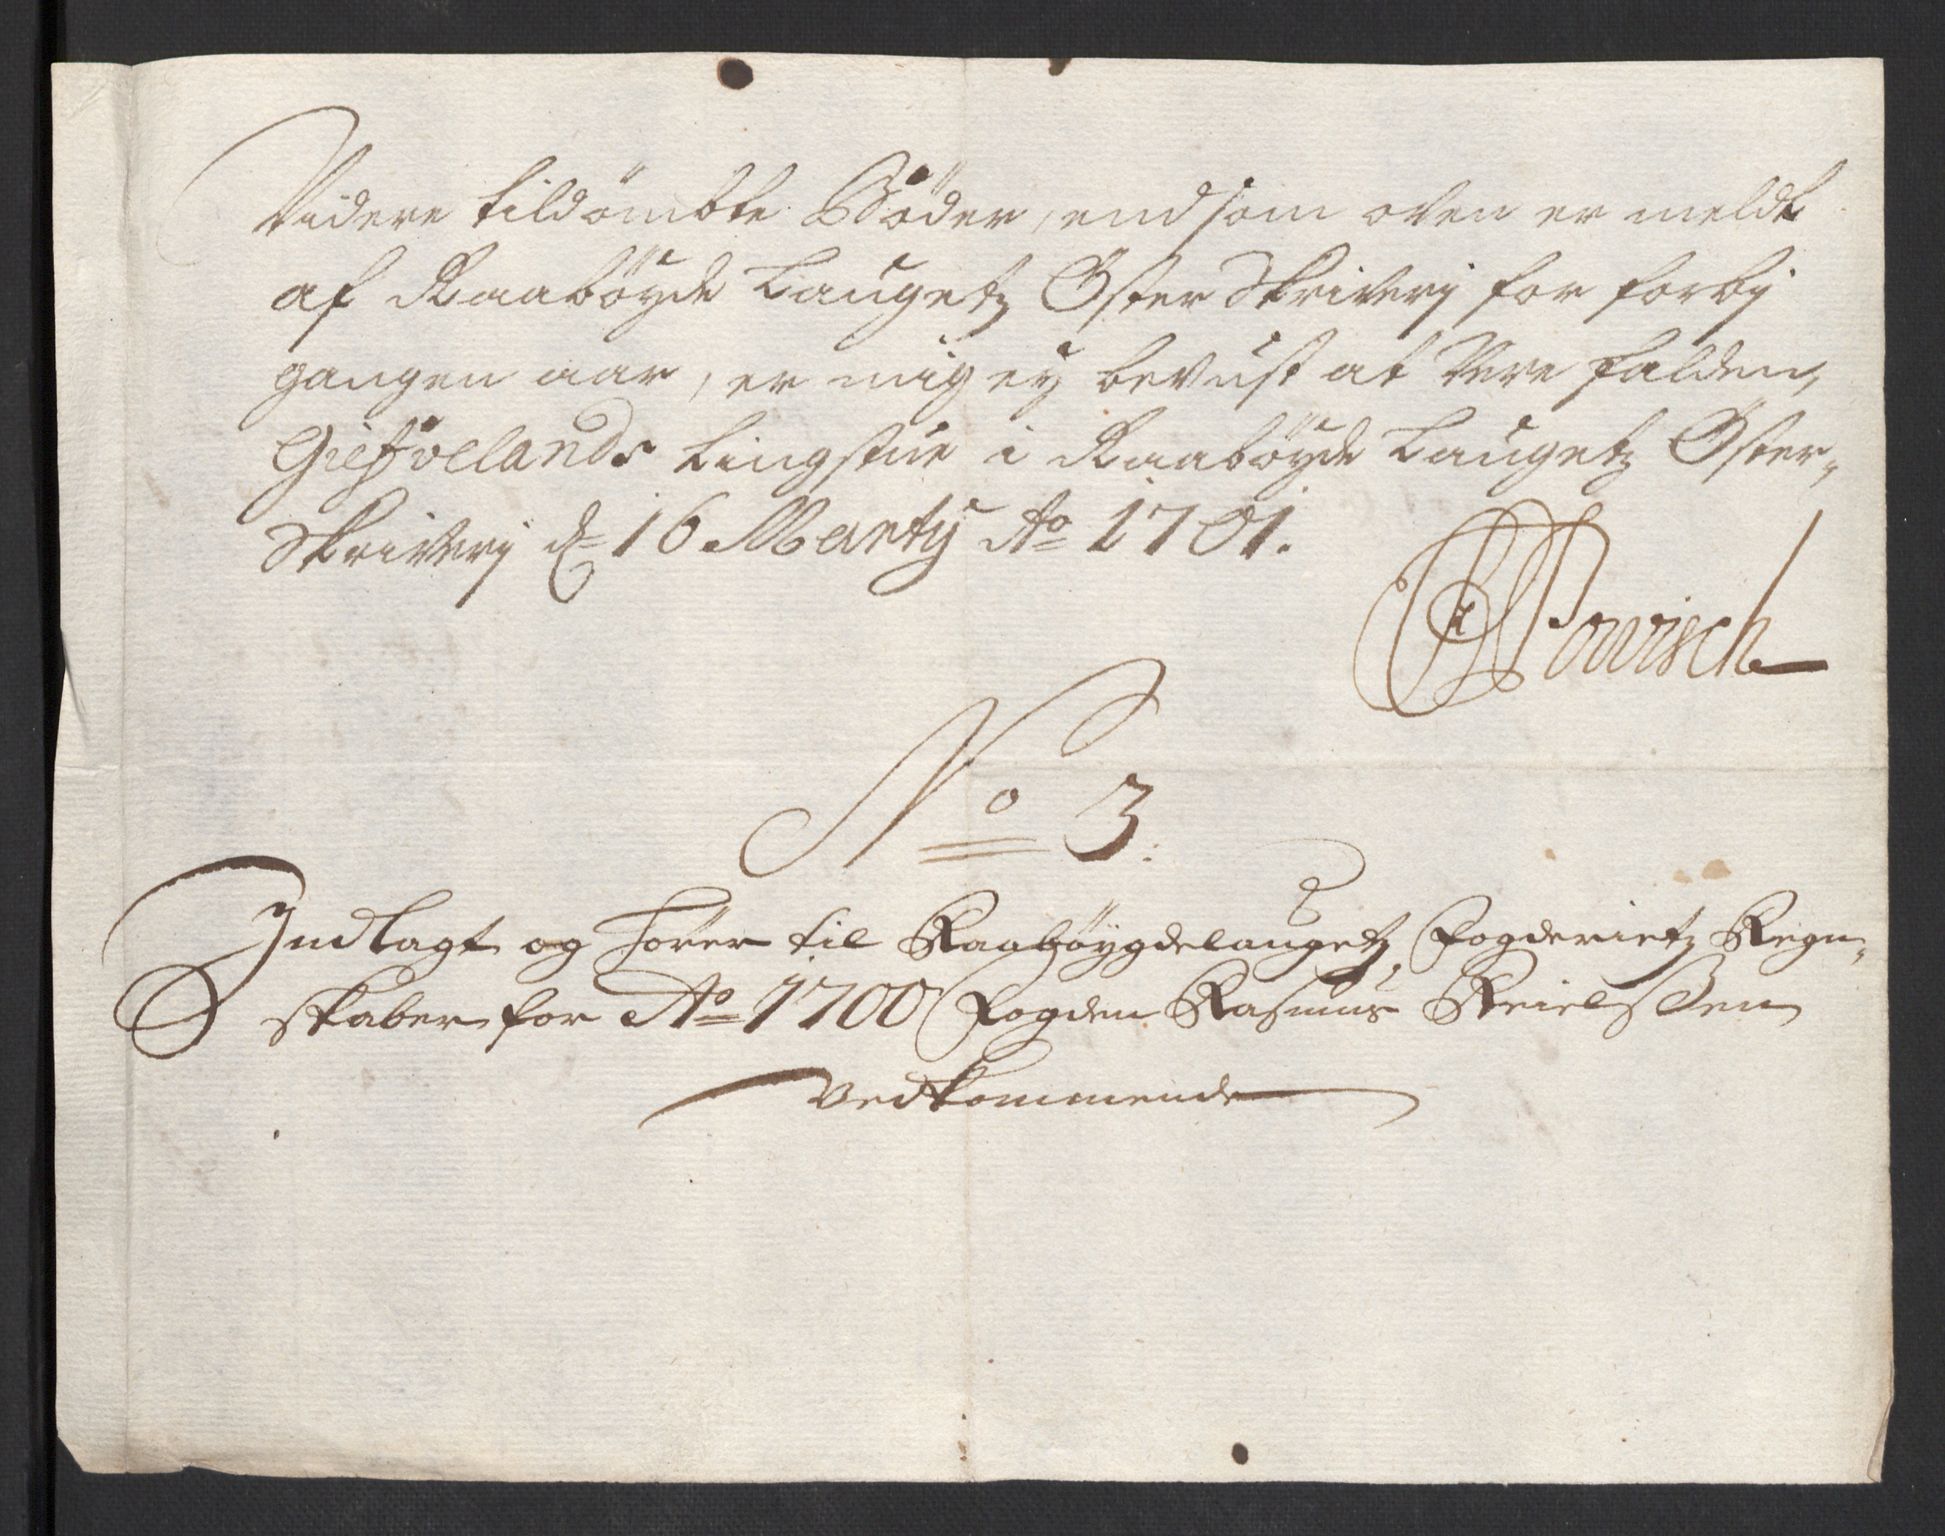 Videre tildömbte Böder, end som oven er meldt
af Raaböyde Laugetz Öster Skriverj for forbj
gangen aar, er mig ey bevust at Vere falden,
Gieffvelands tingstue i Raaböyde Laugetz Öster-
Skriverj d= 16 Martÿ Ao 1701.
Powisch
No 3:
Indlagt og hörer til Raaböygdelaugetz, Fogderietz Regn-
skaber for Ao 1700 Fogden Rasmus Keielsßen
Vedkommende